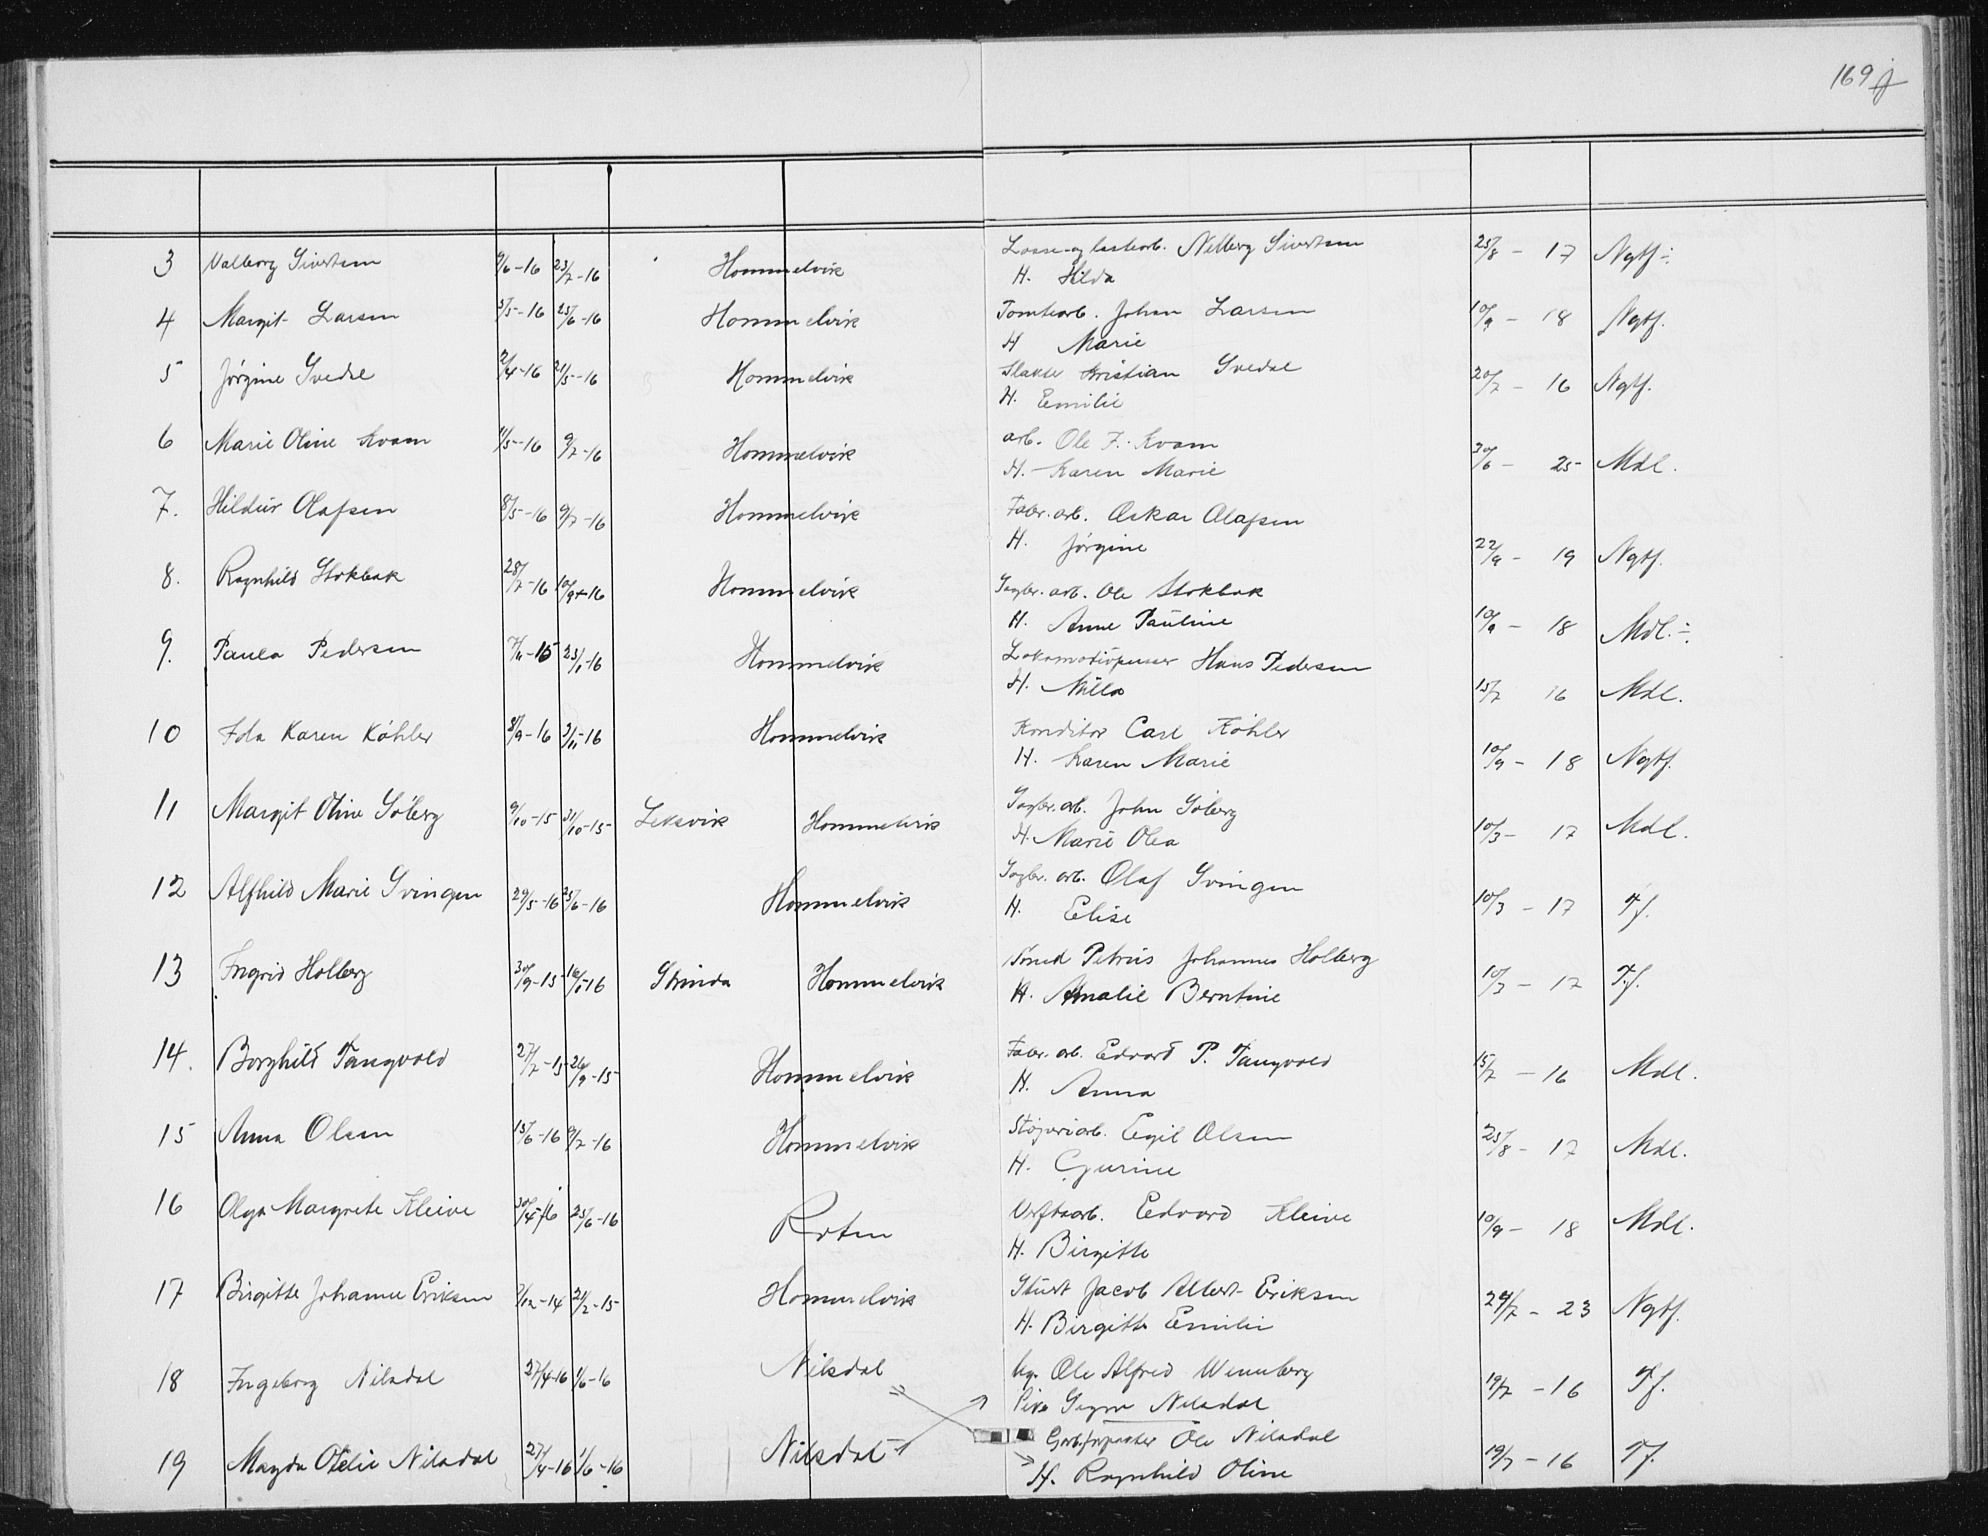 169
3 Valborg Sivertsen 9/6-16 23/7-16 Hommelvik Losse-og lastearb. Nelberg Sivertsen 25/8 - 17 Ngtf ÷
H. Hilda
4 Margit Larsen 5/5-16 25/6-16 Hommelvik Tomtearb. Johan Larsen 10/9 - 18 Ngtf.
H Marie
5 Jørgine Svedal 2/4-16 21/5-16 Hommelvik Slakter Kristian Svedal 20/7 - 16 Ngtf.
H. Emilie
6 Marie Oline Kvam 11/5-16 9/7-16 Hommelvik arb. Ole F. Kvam 30/6 - 25 Mdl.
H. Karen Marie
7. Hildur Olafsen 8/5-16 9/7-16 Hommelvik Fabr. arb. Oskar Olafsen
H. Jørgine 22/9 - 19 Ngtf.
8. Ragnhild Stokbak 28/7-16 10/9-16 Hommelvik Sagbr. arb. Ole Stokbak
H. Anne Pauline 10/9 - 18 Mdl. ÷
9. Paula Pedersen -15 23/1-16 Hommelvik Lokomotivpusser Hans Pedersen
H. Milla 15/7 16 Mdl.
10 Ida Karen Köhler 8/9-16 5/11-16 Hommelvik Konditor Carl Köhler
H. Karen Marie 10/9 - 18 Ngtf.
11 Margit Oline Söberg 9/10-15 31/10-15 Leksvik Hommelvik Sagbr. arb. John Söberg
H. Marie Olea 10/3 - 17 Mdl.
12 Alfhild Marie Svingen 29/5-16 25/6-16 Hommelvik Sagbr. arb. Olaf Svingen
H. Elise 10/3 - 17 Tf.
13 Ingrid Holberg 30/9-15 16/1-16 Strinda Hommelvik Smed Petrus Johannes Holberg
H. Amalie Berntine 10/3 - 17 Tf.
14. Borghild Tangvold 27/7-15 26/9-15 Hommelvik Fabr. arb. Edvard P. Tangvold
H. Anna 15/7 - 16 Mdl.
15 Anna Olsen 15/6-16 9/7-16 Hommelvik Støperiarb. Egil Olsen
H. Gjurine 25/8 - 17 Mdl.
16 Olga Margrete Kleive 30/4-16 25/6-16 Roten Verftsarb. Edvard Kleive
H. Birgitte 10/9 - 18 Mdl.
17 Birgitte Johanne Eriksen 7/12-14 21/2-15 Hommelvik Stuert Jacob Albert Eriksen
H. Birgitte Emilie 29/7 - 23 Ngtf.
18 Ingeborg Nilsdal 27/4-16 1/6-16 Nilsdal Ug. Ole Alfred Wennberg
Pike Signe Nilsdal 19/7 - 16 Tf.
19 Magda Otelie Nilsdal 27/4-16 1/6-16 Nilsdal Gårdforpakter Ole Nilsdal
H. Ragnhild Oline 19/7 - 16 Tf.